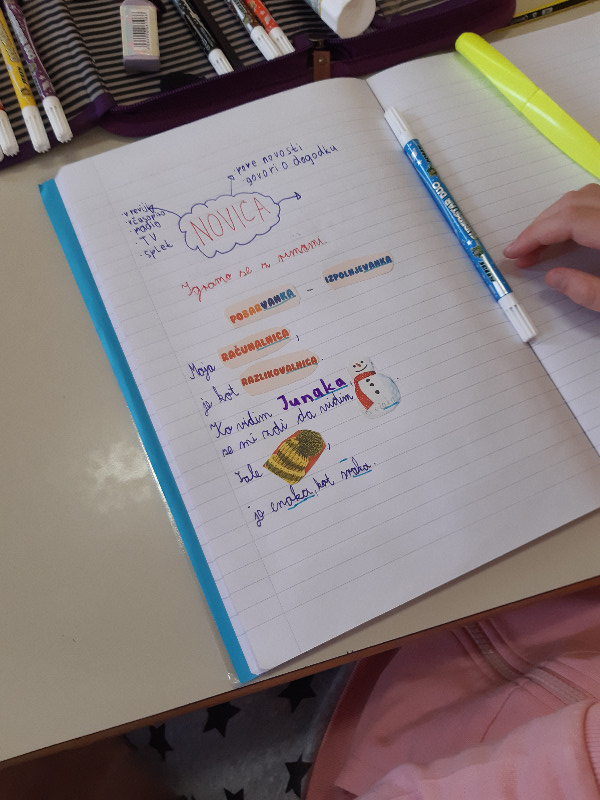 pove novosti
govori o dogodku
v reviji
radio
TV
splet
NOVICA
Igramo se z rimami
POBARVANKA – IZPOLNJEVANKA
Moja RAČUNALNICA,
je kot RAZLIKOVALNICA.
Ko vidim Junaka
se mi zdi da vidim
Tale ,
je enaka, kot vsaka.
DUO